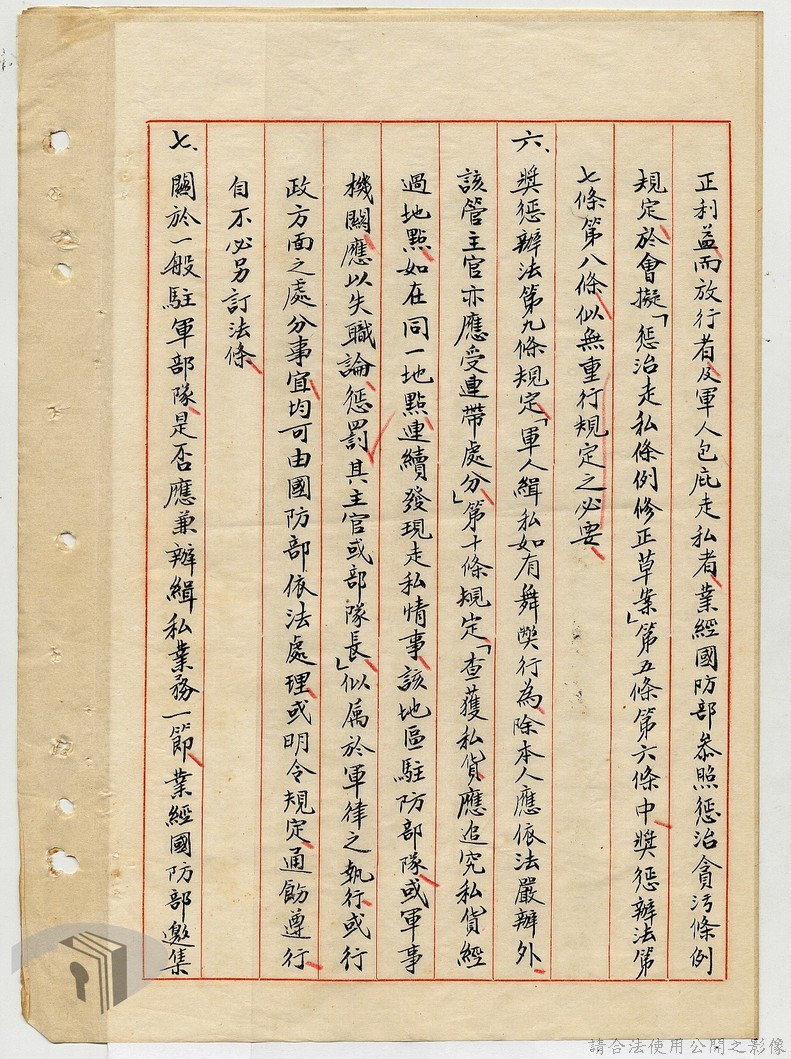 正利益而放行者及軍人包庇走私者業經國防部參照懲治貪污條例
規定於會擬「懲治走私條例修正草案」第五條第六條中獎懲辦法第
七條第八條似無重行規定之必要
六、獎懲辦法第九條規定「軍人緝私如有舞弊行為除本人應依法嚴辦外
該管主官亦應受連帶處分」第十條規定「查獲私貨應追究私貨經
過地點如在同一地點連續發現走私情事該地區駐防部隊或軍事
機關應以失職論懲罰其主官或部隊長」似属於軍律之執行或行
政方面之處分事宜均可由國防部依法處理或明令規定通飭遵行
自不必另訂法條
七、關於一般駐軍部隊是否應兼辦緝私業務一節業經國防部邀集
請合法使用公開之影像